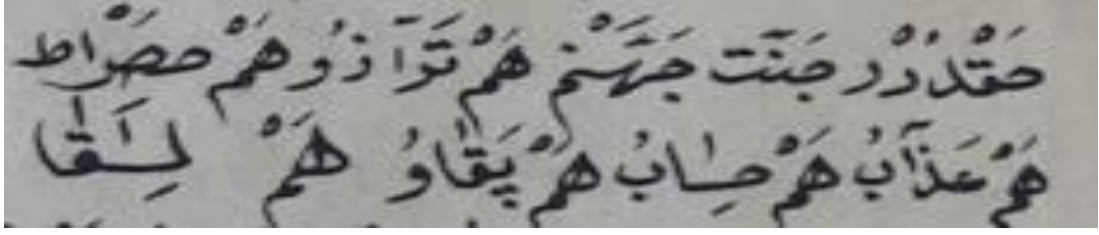 حَقْدُرُرْ جَنَّت جَهَنَّمْ هَمْ تَرَآزُو هَمْ صِرَاط
هَمْ عَذَآبُ هَمْ حِسَابُ هَمْ پَقَاوُ هَمْ لِقَا